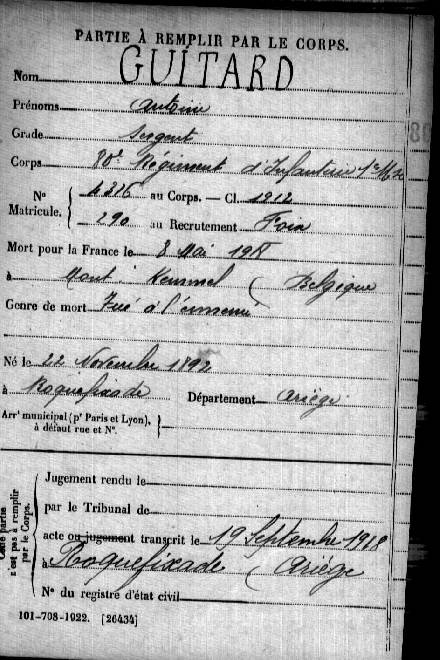 PARTIE À REMPLIR PAR LE CORPS.
Nom GUITARD
Prénoms Antoine
Grade Sergent
Corps 80e Régiment d'Infanterie 1e Mre
N° 4326 au Corps. — Cl. 1912
Matricule. 290 au Recrutement Foix
Mort pour la France le 8 Mai 1918
à Mont Kemmel (Belgique
Genre de mort Tué à l'ennemi
Né le 22 Novembre 1892
à Roquefixade Département Ariège
Arrt municipal (pr Paris et Lyon),
à défaut rue et N°.
Cette partie
n'est pas à remplir
par le Corps.
Jugement rendu le
par le Tribunal de
acte ou jugement transcrit le 19 Septembre 1918
à Roquefixade (Ariège
N° du registre d'état civil
101-708-1922. [26434]